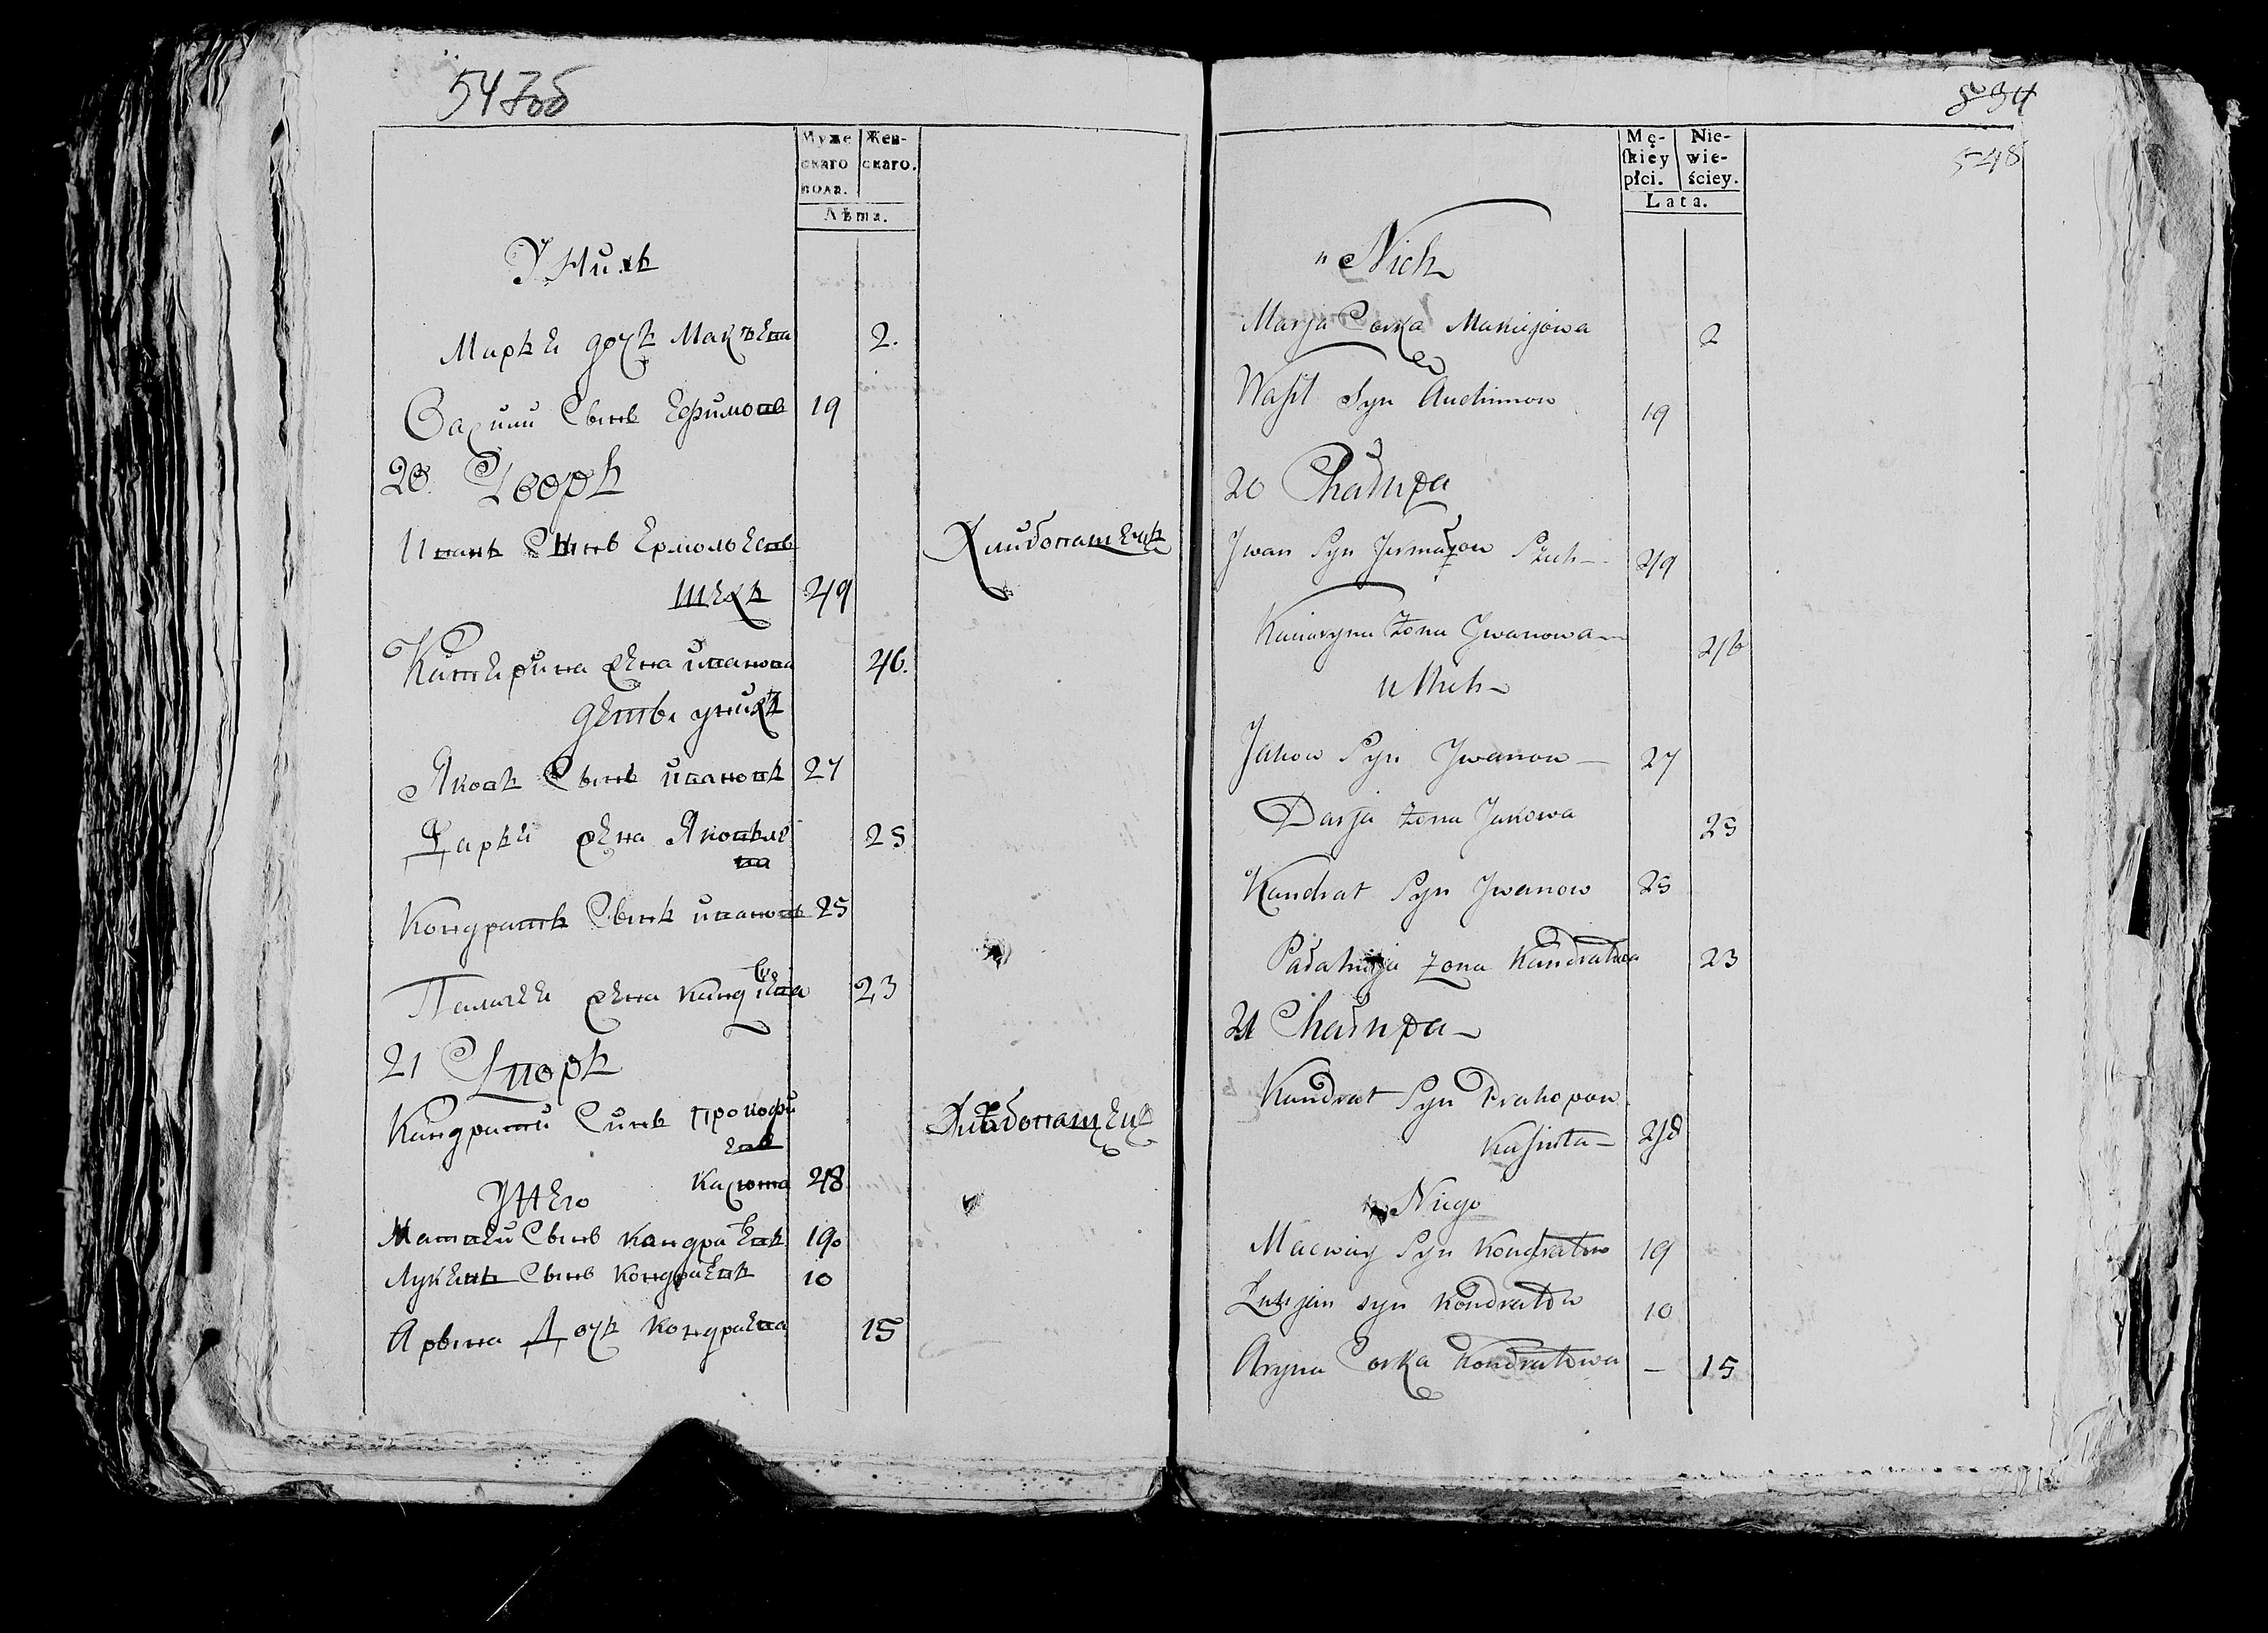 547об
Муже
скаго
пола.
Жен-
скаго.
Лѣта.
У Нихъ
Марья дочь Макѣева 2.
Васили Сынъ Ефимовъ 19
20. Дворъ
Иванъ Сынъ Ермольевъ
шехъ 49
Катерина жена иванова 46.
дети уникъ
Яковъ Сынъ ивановъ 27
Дарья жена Яковле
ва 25
Кондратъ Сынъ ивановъ 25
жена 23
21 Дворъ
Кандрати Синъ Прокофи
евъ
Касюта 48
У Него
Матвеи Сынъ 19
Лукьянъ Сынъ 10
Арына Дочь Кондраева 15
834
548
Mę-
ſkiey
płci.
Nie-
wie-
ściey.
Lata.
u Nich
Marja Corka 2
Wasil Syn Auchimow 19
20 Chałupa
Jwan Syn 49
Kataryna żona Jwanowa 46
u Nich
Jakow Syn Jwanow 27
Darja żona Jakowa 25
Kandrat Syn Jwanow 25
żona Kandratowa 23
21 Chałupa
Kandrat Syn Prakopow
Kasiuta 48
u Niego
Maciwiey Syn Kondratow 19
Łukjan syn Kondratow 10
Aryna Corka Kondratowa – 15